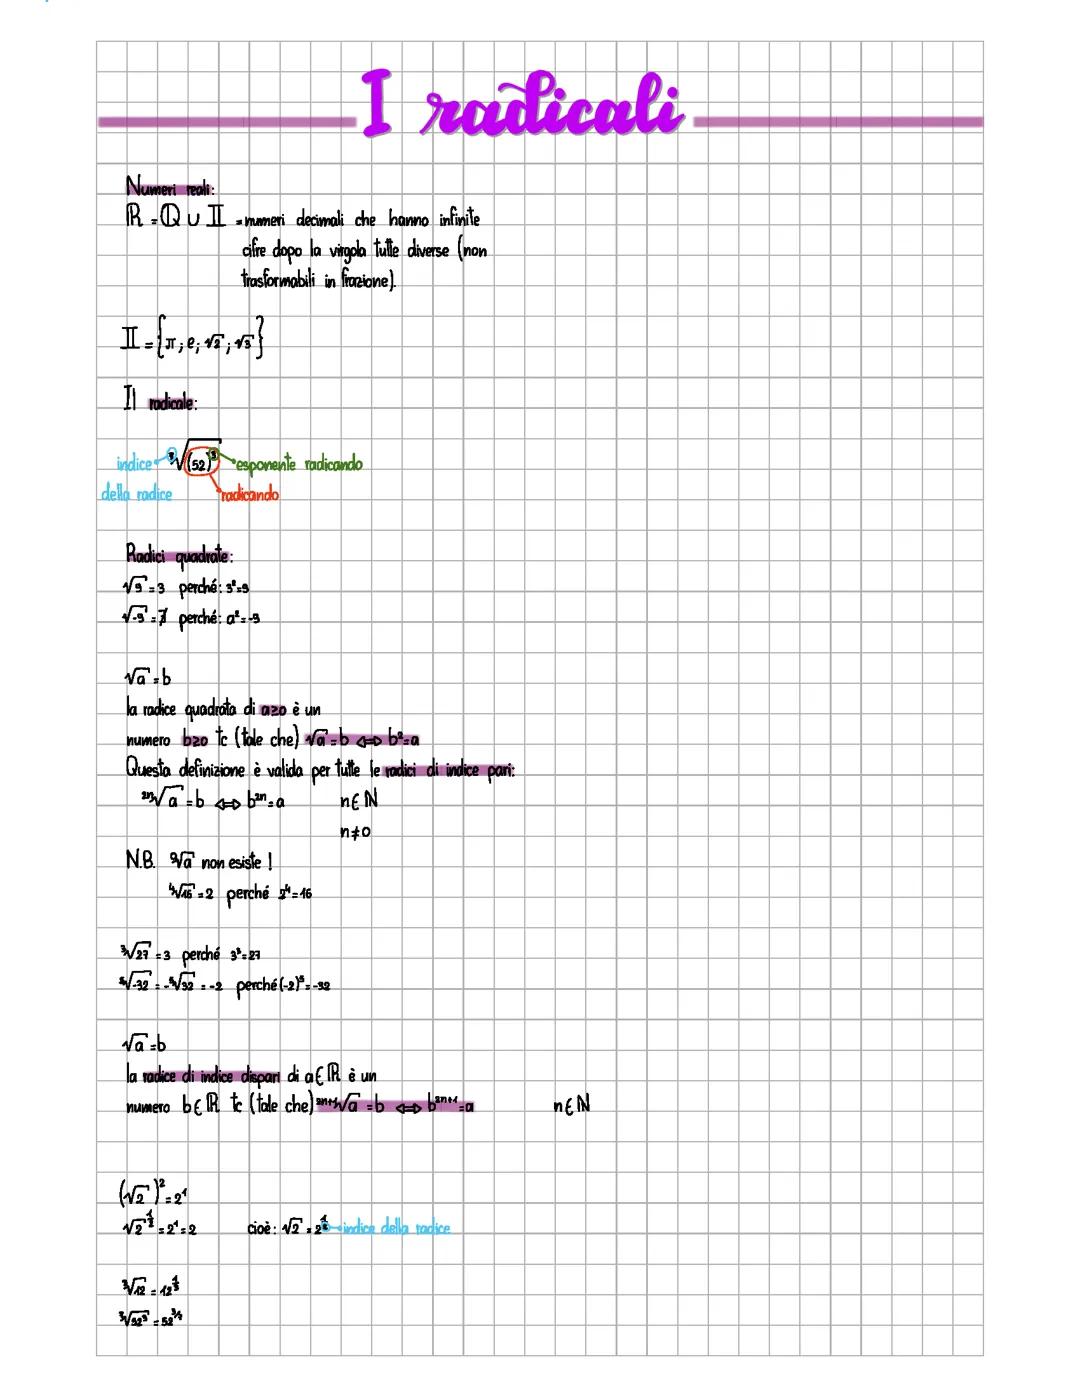 I radicali
Numeri reali:
ℝ = ℚ ∪ 𝕀 = numeri decimali che hanno infinite
cifre dopo la virgola tutte diverse (non
trasformabili in frazione).
𝕀 = {π; e; √2; √3}
Il radicale:
indice ∛(52)³ esponente radicando
della radice radicando
Radici quadrate:
√9 = 3 perché: 3² = 9
√-9 = ∄ perché: a² = -9
√a = b
la radice quadrata di a≥0 è un
numero b≥0 tc (tale che) √a = b ⇔ b² = a
Questa definizione è valida per tutte le radici di indice pari:
²ⁿ√a = b ⇔ b²ⁿ = a n∈ℕ
n≠0
N.B. ⁰√a non esiste !
⁴√16 = 2 perché 2⁴ = 16
³√27 = 3 perché 3³ = 27
⁵√-32 = -⁵√32 = -2 perché (-2)⁵ = -32
√a = b
la radice di indice dispari di a∈ℝ è un
numero b∈ℝ tc (tale che) ²ⁿ⁺¹√a = b ⇔ b²ⁿ⁺¹ = a n∈ℕ
(√2)² = 2¹
= 2¹ = 2 cioè: √2 = 2^½ indice della radice
³√12 = 12^⅓
= 52^3/2